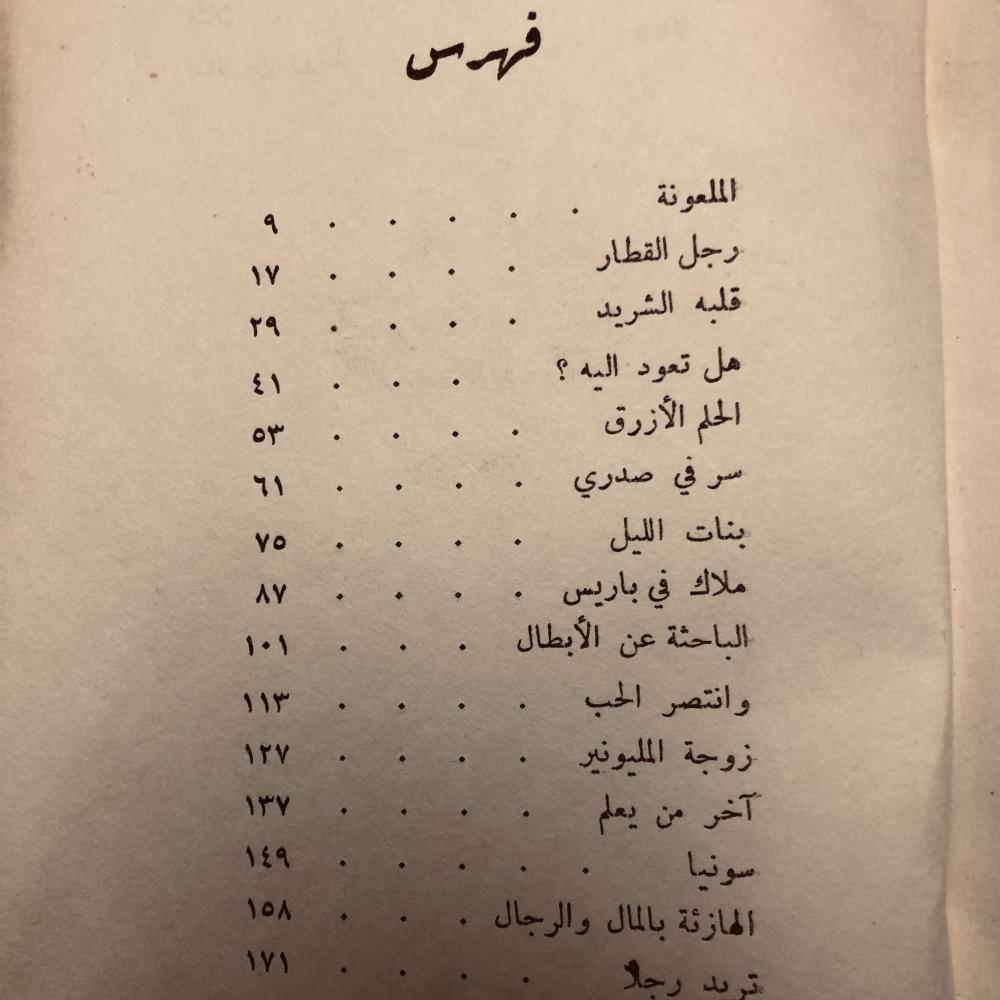 فهرس
الملعونة . . . . . ٩
رجل القطار . . . . ١٧
قلبه الشريد . . . . ٢٩
هل تعود اليه ؟ . . . ٤١
الحلم الأزرق . . . . ٥٣
سر في صدري . . . . ٦١
بنات الليل . . . . ٧٥
ملاك في باريس . . . . ٨٧
الباحثة عن الأبطال . . . ١٠١
وانتصر الحب . . . . ١١٣
زوجة المليونير . . . . ١٢٧
آخر من يعلم . . . . ١٣٧
سونيا . . . . . ١٤٩
الهازئة بالمال والرجال . . . ١٥٨
تريد رجلا . . . . ١٧١